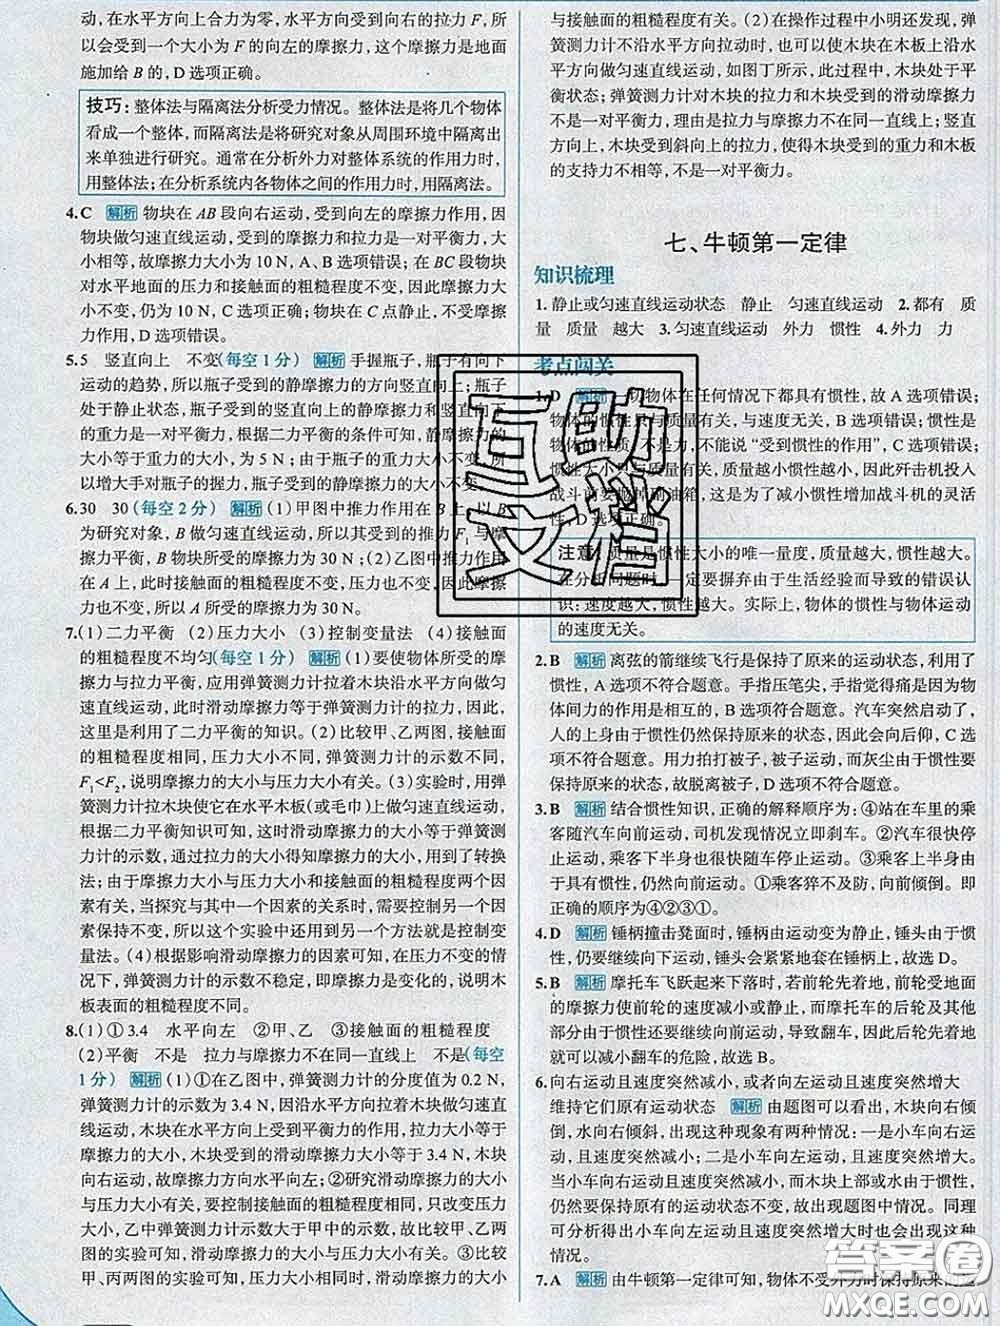 动,在水平方向上合力为零,水平方向受到向右的拉力 F,所
以会受到一个大小为 F 的向左的摩擦力,这个摩擦力是地面
施加给 B 的,D 选项正确。
技巧:整体法与隔离法分析受力情况。整体法是将几个物体
看成一个整体,而隔离法是将研究对象从周围环境中隔离出
来单独进行研究。通常在分析外力对整体系统的作用力时,
用整体法;在分析系统内各物体之间的作用力时,用隔离法。
4.C 解析 物块在 AB 段向右运动,受到向左的摩擦力作用,因
物块做匀速直线运动,受到的摩擦力和拉力是一对平衡力,大
小相等,故摩擦力大小为 10 N,A、B 选项错误;在 BC 段物块
对水平地面的压力和接触面的粗糙程度不变,因此摩擦力大
小不变,仍为 10 N,C 选项正确;物块在 C 点静止,不受摩擦
力作用,D 选项错误。
5.5 竖直向上 不变(每空 1 分) 解析 手握瓶子,瓶子有向下
运动的趋势,所以瓶子受到的静摩擦力的方向竖直向上;瓶子
处于静止状态,瓶子受到的竖直向上的静摩擦力和竖直向下
的重力是一对平衡力,根据二力平衡的条件可知,静摩擦力的
大小等于重力的大小,为 5 N;由于瓶子的重力大小不变,所
以增大手对瓶子的握力,瓶子受到的静摩擦力的大小不变。
6.30 30(每空 2 分) 解析 (1)甲图中推力作用在 B 上,以 B
为研究对象,B 做匀速直线运动,所以其受到的推力F1与摩
擦力平衡,B 物块所受的摩擦力为 30 N;(2)乙图中推力作用
在 A 上,此时接触面的粗糙程度不变,压力也不变,因此摩擦
力也不变,所以 A 所受的摩擦力为 30 N。
7.(1)二力平衡 (2)压力大小 (3)控制变量法 (4)接触面
的粗糙程度不均匀(每空 1 分) 解析 (1)要使物体所受的摩
擦力与拉力平衡,应用弹簧测力计拉着木块沿水平方向做匀
速直线运动,此时滑动摩擦力等于弹簧测力计的拉力,因此,
这里是利用了二力平衡的知识。(2)比较甲、乙两图,接触面
的粗糙程度相同,压力大小不同,弹簧测力计的示数不同,
F1<F2,说明摩擦力的大小与压力大小有关。(3)实验时,用弹
簧测力计拉木块使它在水平木板(或毛巾)上做匀速直线运动,
根据二力平衡知识可知,这时滑动摩擦力的大小等于弹簧测
力计的示数,通过拉力的大小得知摩擦力的大小,用到了转换
法;由于摩擦力大小与压力大小和接触面的粗糙程度两个因
素有关,当探究与其中一个因素的关系时,需要控制另一个因
素保持不变,所以这个实验中还用到另一个方法就是控制变
量法。(4)根据影响滑动摩擦力的因素可知,在压力不变的情
况下,弹簧测力计的示数不稳定,即摩擦力是变化的,说明木
板表面的粗糙程度不同。
8.(1)①3.4 水平向左 ②甲、乙 ③接触面的粗糙程度
(2)平衡 不是 拉力与摩擦力不在同一直线上 不是(每空
1 分) 解析 (1)①在乙图中,弹簧测力计的分度值为 0.2 N,
弹簧测力计的示数为 3.4 N,因沿水平方向拉着木块做匀速直
线运动,木块在水平方向上受到平衡力的作用,拉力大小等于
摩擦力的大小,木块受到的滑动摩擦力大小等于 3.4 N,木块
向右运动,故摩擦力方向水平向左;②研究滑动摩擦力的大小
与压力大小有关,要控制接触面的粗糙程度相同,只改变压力
大小,乙中弹簧测力计示数大于甲中的示数,故比较甲、乙两
图的实验可知,滑动摩擦力的大小与压力大小有关。③比较
甲、丙两图的实验可知,压力大小相同时,滑动摩擦力的大小
与接触面的粗糙程度有关。(2)在操作过程中小明还发现,弹
簧测力计不沿水平方向拉动时,也可以使木块在木板上沿水
平方向做匀速直线运动,如图丁所示,此过程中,木块处于平
衡状态;弹簧测力计对木块的拉力和木块受到的滑动摩擦力
不是一对平衡力,理由是拉力与摩擦力不在同一直线上;竖直
方向上,木块受到斜向上的拉力,使得木块受到的重力和木板
的支持力不相等,不是一对平衡力。
七、牛顿第一定律
知识梳理
1.静止或匀速直线运动状态 静止 匀速直线运动 2.都有 质
量 质量 越大 3.匀速直线运动 外力 惯性 4.外力 力
考点闯关
1.D 解析 一切物体在任何情况下都具有惯性,故 A 选项错误;
物体的惯性只与质量有关,与速度无关,B 选项错误;惯性是
物体的性质,不是力,不能说“受到惯性的作用”,C 选项错误;
惯性大小与质量有关,质量越小惯性越小,因此歼击机投入
战斗前要抛掉副油箱,这是为了减小惯性增加战斗机的灵活
性,D 选项正确。
注意:质量是惯性大小的唯一量度,质量越大,惯性越大。
在分析问题时,一定要摒弃由于生活经验而导致的错误认
识:速度越大,惯性越大。实际上,物体的惯性与物体运动
的速度无关。
2.B 解析 离弦的箭继续飞行是保持了原来的运动状态,利用了
惯性,A 选项不符合题意。手指压笔尖,手指觉得痛是因为物
体间力的作用是相互的,B 选项符合题意。汽车突然启动了,
人的上身由于惯性仍然保持原来的状态,因此会向后仰,C 选
项不符合题意。用力拍打被子,被子运动,而灰尘由于惯性要
保持原来的状态,故脱离被子,D 选项不符合题意。
3.B 解析 结合惯性知识,正确的解释顺序为:④站在车里的乘
客随汽车向前运动,司机发现情况立即刹车。②汽车很快停
止运动,乘客下半身也很快随车停止运动。③乘客上半身由
于具有惯性,仍然向前运动。①乘客猝不及防,向前倾倒。即
正确的顺序为④②③①。
4.D 解析 锤柄撞击凳面时,锤柄由运动变为静止,锤头由于惯
性,仍要继续向下运动,锤头会紧紧地套在锤柄上,故选 D。
5.B 解析 摩托车飞跃起来下落时,若前轮先着地,前轮受地面
的摩擦力使前轮的速度减小或静止,而摩托车的后轮及其他
部分由于惯性还要继续向前运动,导致翻车,因此后轮先着地
就可以减小翻车的危险,故选 B。
6.向右运动且速度突然减小,或者向左运动且速度突然增大
维持它们原有运动状态 解析 由题图可以看出,木块向右倾
倒,水向右倾斜,出现这种现象有两种情况:一是小车向右运
动,速度突然减小;二是小车向左运动,且速度突然增大。
当小车向右运动且速度突然减小时,而木块上部或水由于惯
性,仍然要保持原有的运动状态不变,故出现题图中情况。同理
可分析得出小车向左运动且速度突然增大时也会出现这种
情况。
7.A 解析 由牛顿第一定律可知,物体不受外力时保持原来的运
互助文档
答案圈
MXQE.COM